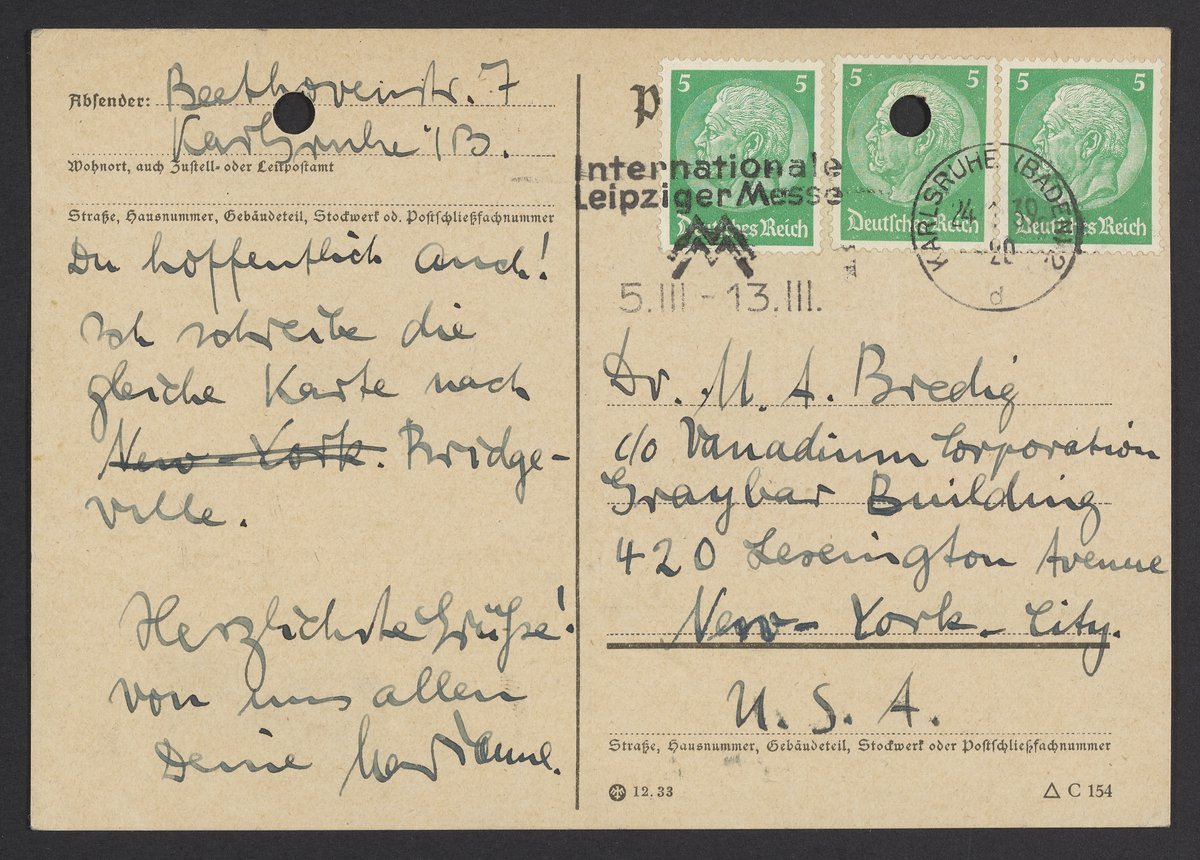 Absender: Beethovenstr. 7
Karlsruhe i/B.
Wohnort, auch Zustell- oder Leitpostamt
Straße, Hausnummer, Gebäudeteil, Stockwerk od. Postschließfachnummer
Du hoffentlich auch!
Ich schreibe die
gleiche Karte nach
New-York. Bridge-
ville.
Herzlichste Grüße!
von uns allen
Deine Marianne.
P
5 5
5 5
5 5
Deutsches Reich
Deutsches Reich
Deutsches Reich
Internationale
Leipziger Messe
5.III - 13.III.
KARLSRUHE (BADEN) 2
24. 1. 39
20
d
Dr. M. A. Bredig
c/o Vanadium Corporation
Graybar Building
420 Lexington Avenue
New-York-City.
U. S. A.
Straße, Hausnummer, Gebäudeteil, Stockwerk oder Postschließfachnummer
12. 33
C 154